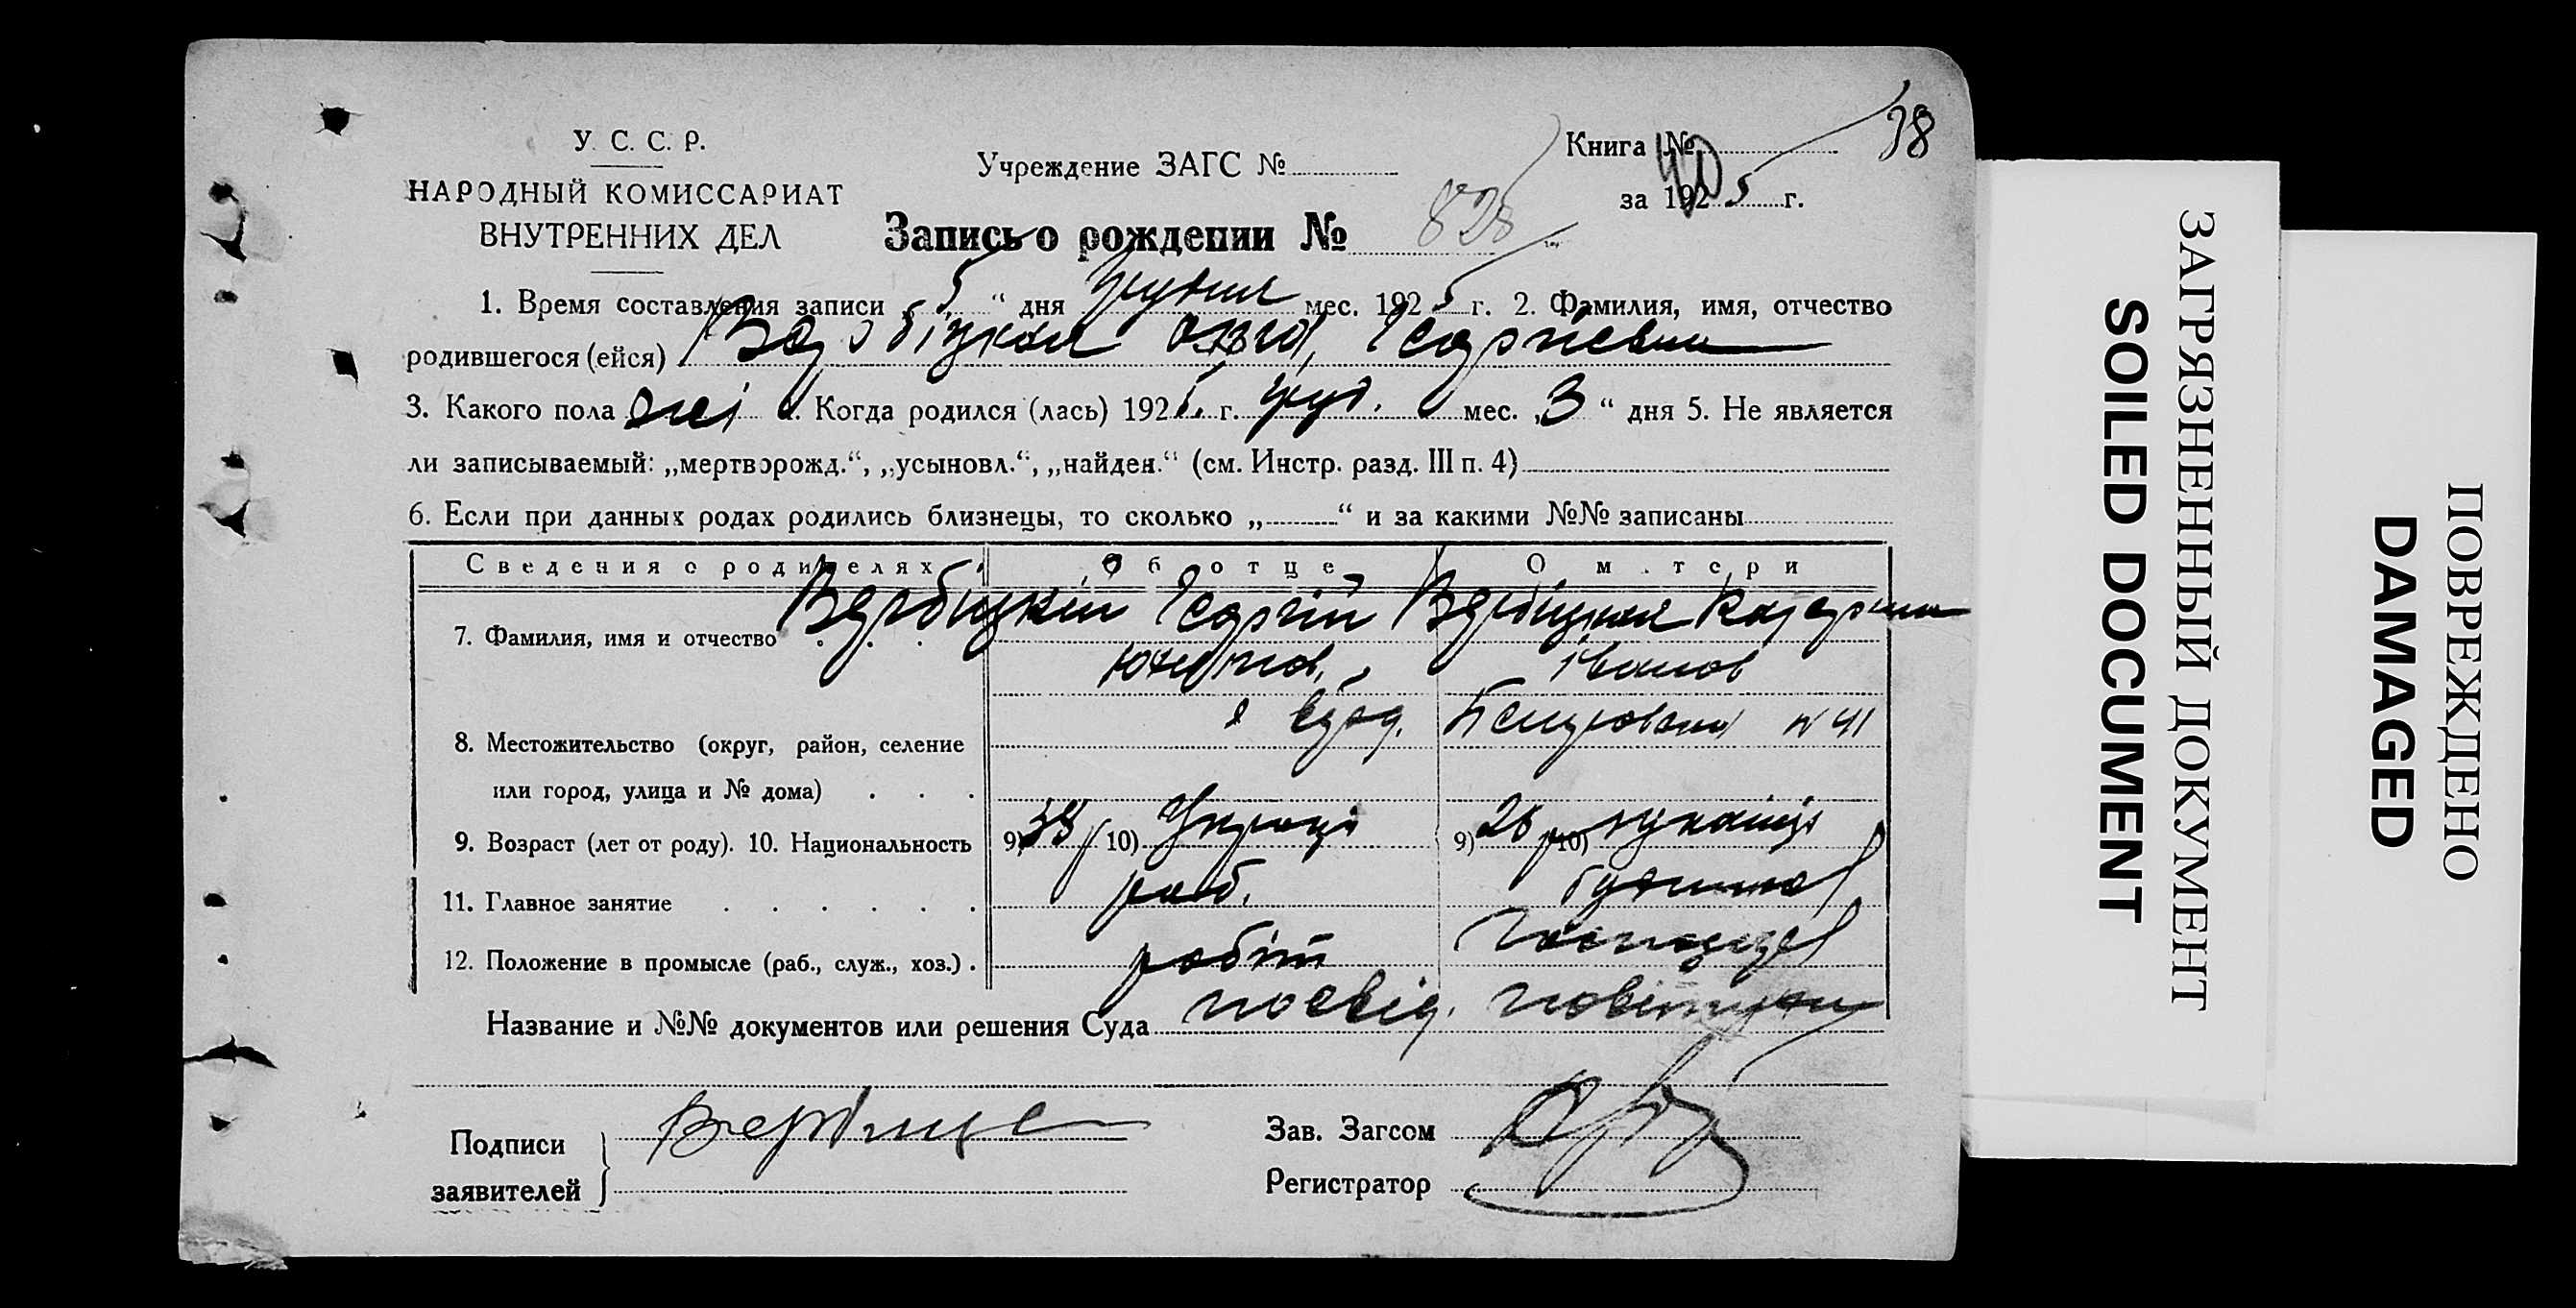 У. С. С. Р.
НАРОДНЫЙ КОМИССАРИАТ
ВНУТРЕННИХ ДЕЛ
Учреждение ЗАГС №
Книга № 40 38
за 1925 г.
Запись о рождении № 828
1. Время составления записи „5“ дня грудня мес. 1925 г. 2. Фамилия, имя, отчество
родившегося (ейся) Вербіцкая Ольга, Георгіевна
3. Какого пола жі 4. Когда родился (лась) 1925 г. груд. мес. „3“ дня 5. Не является
ли записываемый: „мертворожд.“, „усыновл.“, „найден.“ (см. Инстр. разд. III п. 4)
6. Если при данных родах родились близнецы, то сколько „ “ и за какими №№ записаны
Сведения о родителях Об отце О матери
7. Фамилия, имя и отчество Вербицкий Георгій Вербицкая Катерина
Іванов
8. Местожительство (округ, район, селение N 41
или город, улица и № дома)
9. Возраст (лет от роду). 10. Национальность 9) 10) Україн 9) 26 10) україн
11. Главное занятие роб.
12. Положение в промысле (раб., служ., хоз.) робітн
Название и №№ документов или решения Суда посвід. повитухи
Подписи
заявителей
Зав. Загсом
Регистратор
ЗАГРЯЗНЕННЫЙ ДОКУМЕНТ
SOILED DOCUMENT
ПОВРЕЖДЕНО
DAMAGED